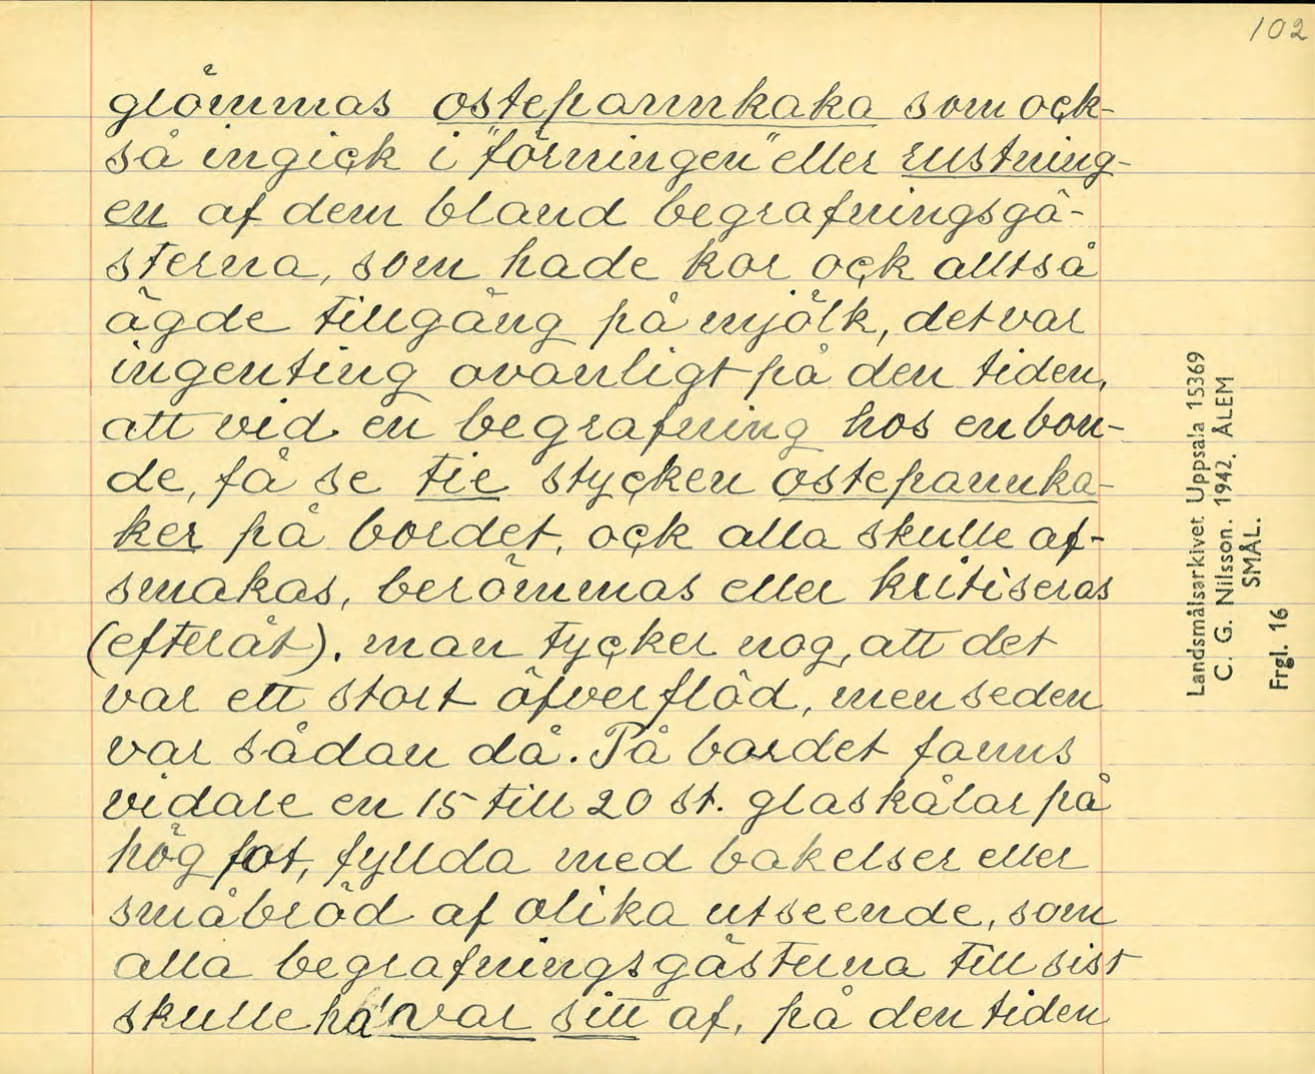 102
glömmas ostepannkaka som ock-
så ingick i "förningen" eller rustning-
en af dem bland begrafningsgä-
sterna, som hade kor ock alltså
ägde tillgång på mjölk, det var
ingenting ovanligt på den tiden,
att vid en begrafning hos en bon-
de, få se tie stycken ostepannka-
ker på bordet, ock alla skulle af-
smakas, berömmas eller kritiseras
(efteråt). man tycker nog, att det
var ett stort öfverflöd, men seden
var sådan då. På bordet fanns
vidare en 15 till 20 st. glaskålar på
hög fot, fyllda med bakelser eller
småbröd af olika utseende, som
alla begrafningsgästerna till sist
skulle ha var sitt af, på den tiden
Landsmålsarkivet Uppsala 15369
C. G. Nilsson. 1942. ÅLEM
SMÅL.
Frgl. 16